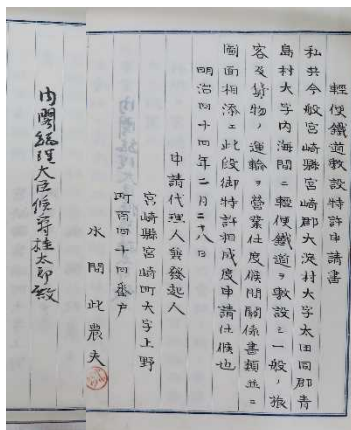 輕便鐵道敷設特許申請書
私共今般宮崎縣宮崎郡大淀村大字太田同郡青
島村大字内海間ニ輕便鐵道ヲ敷設シ一般ノ旅
客及貨物ノ運輸ヲ營業仕度候間関係書類並ニ
圖面相添エ此段御特許相成度申請仕候也
明治四十四年二月二十八日
申請代理人兼發起人
宮崎縣宮崎町大字上野
町百四十四番戸
水間此農夫
内閣総理大臣侯爵桂太郎殿